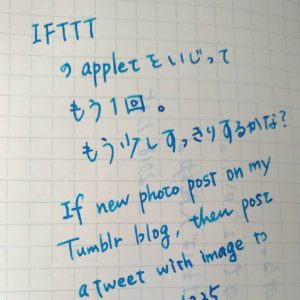 IFTTT
の appletをいじって
もう1回。
もう少しすっきりするかな?
If new photo post on my
Tumblr blog, then post
a tweet with image to